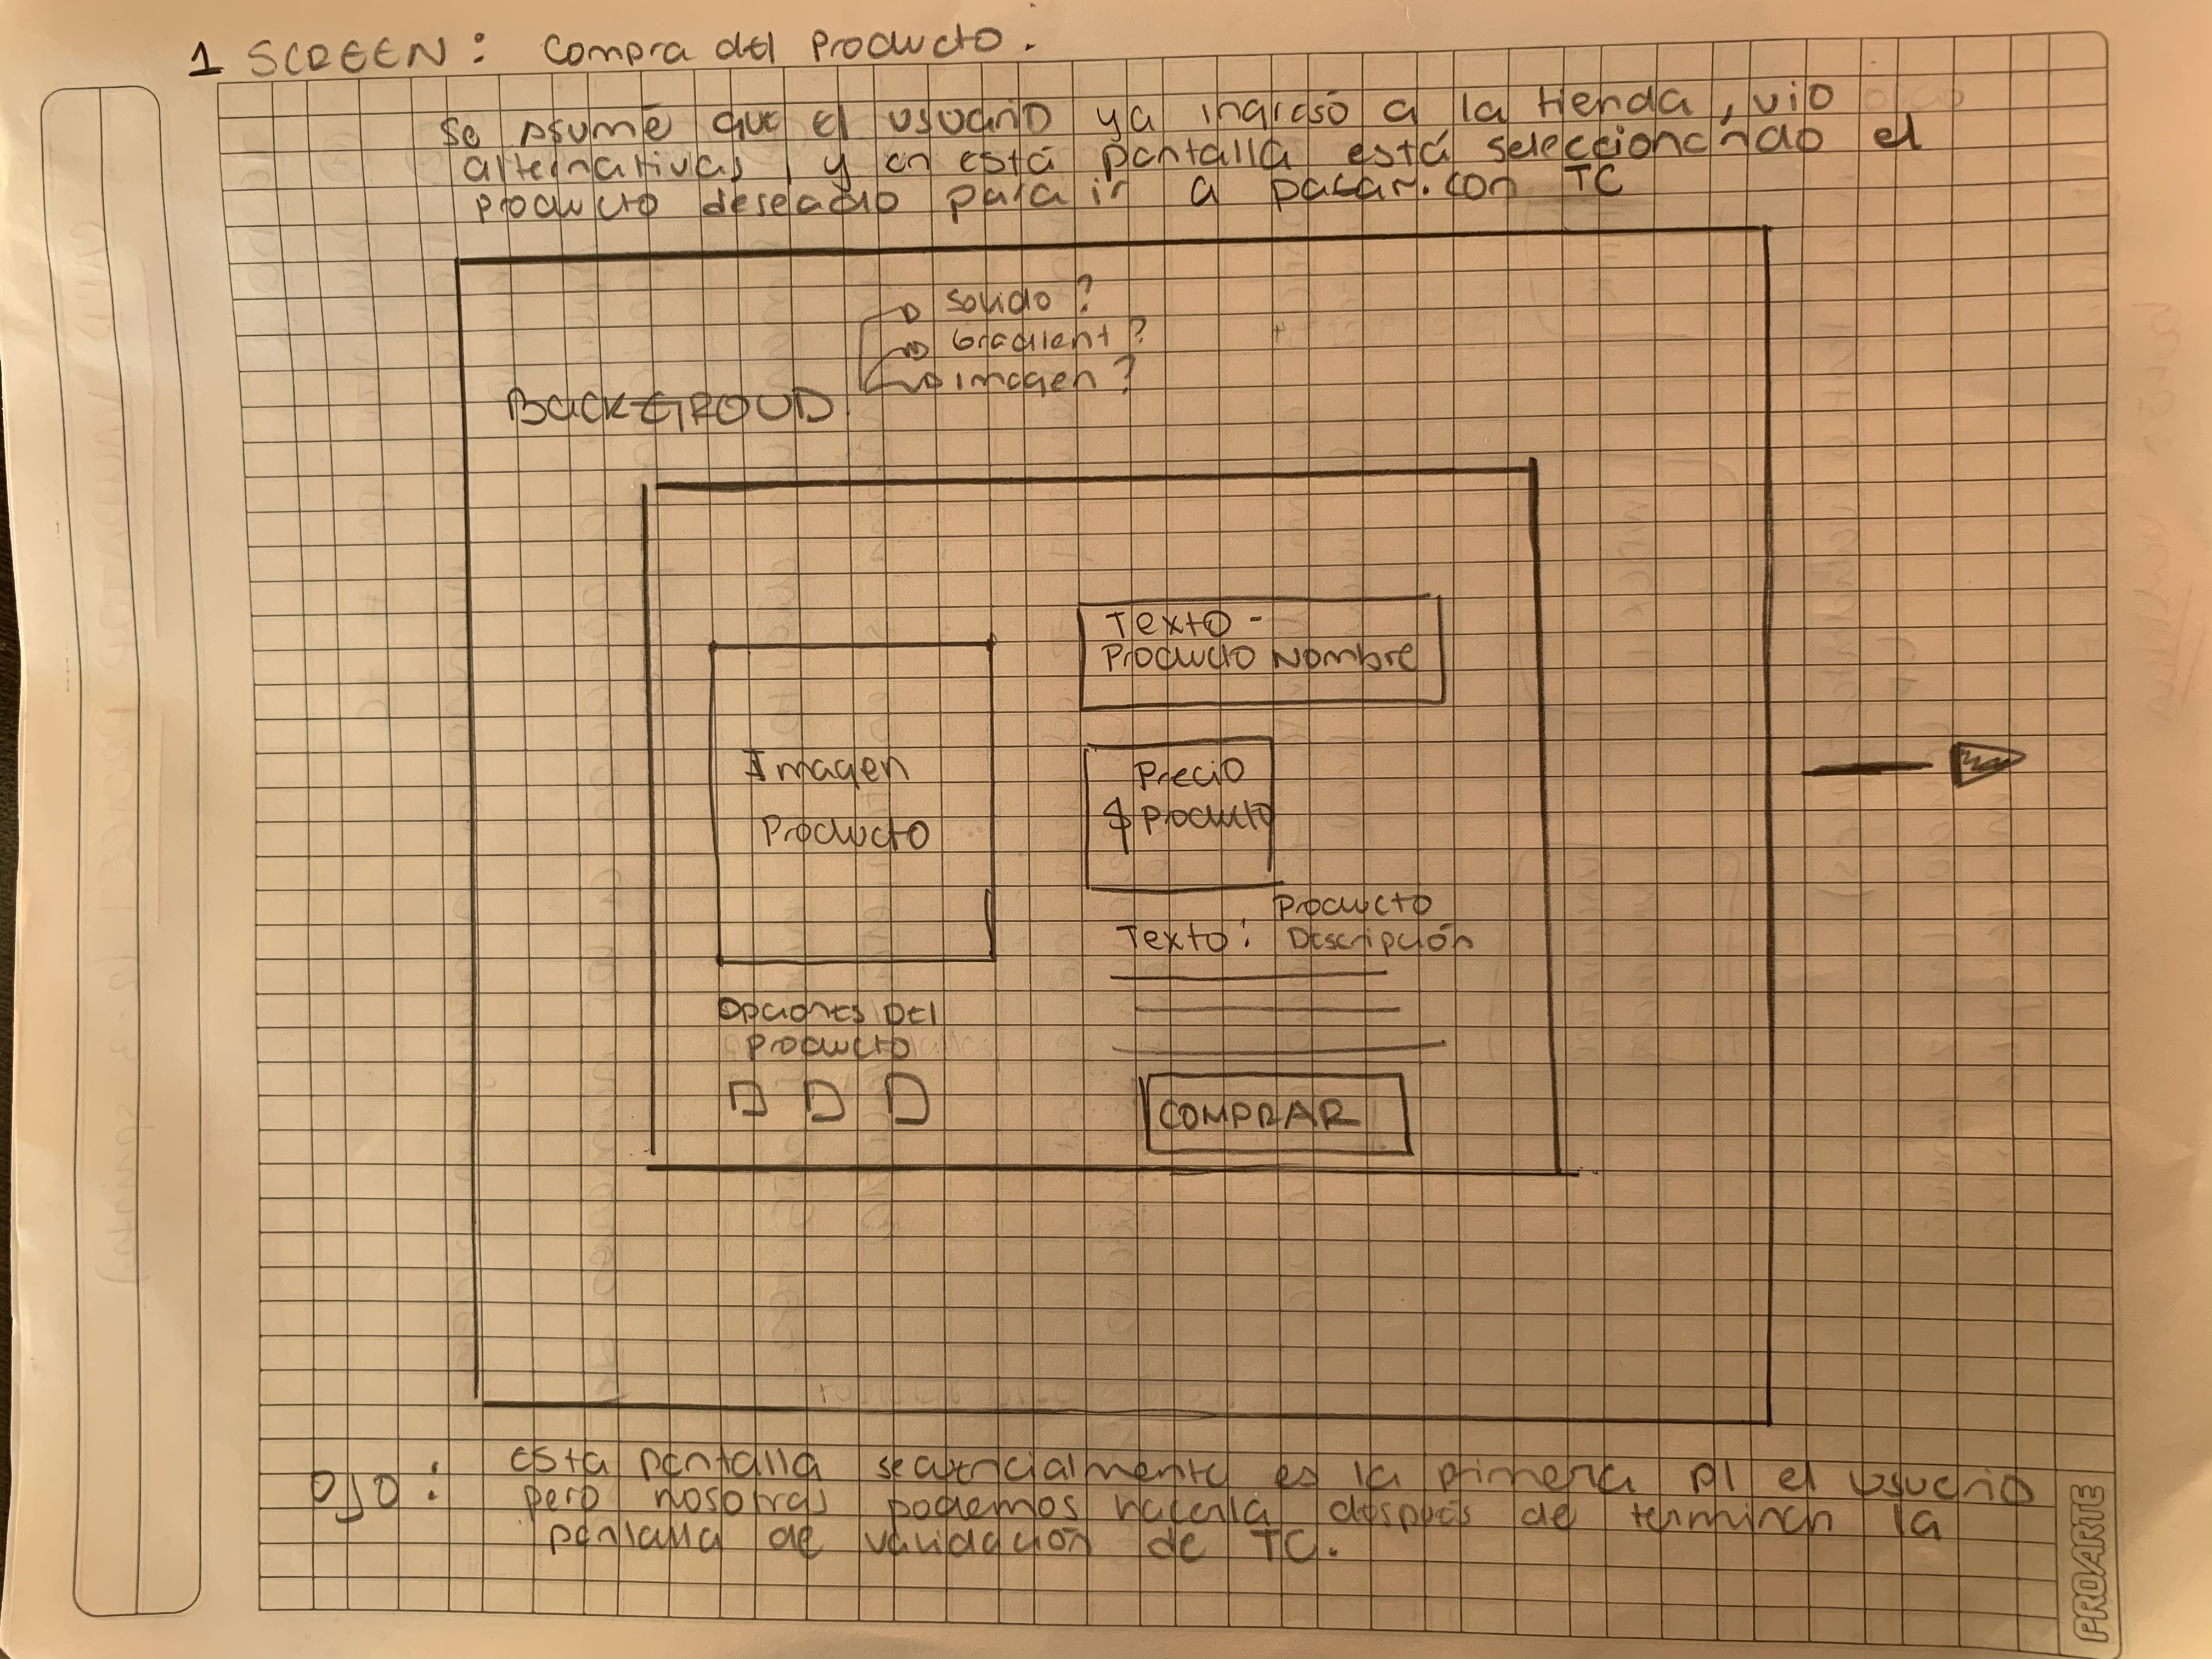 1 SCREEN: Compra del Producto.
Se asume que el usuario ya ingresó a la tienda, vio
alternativas, y en está pantalla está seleccionando el
producto deseado para ir a pagar. con TC
Solido?
Gradient?
imagen?
BACKGROUD
Texto -
Producto Nombre
Imagen
Producto
Precio
$ Producto
Producto
Texto: Descripción
Opciones Del
Producto
COMPRAR
OJO: esta pantalla secuencialmente es la primera pl el usuario
pero nosotras podemos hacerla después de terminar la
pantalla de validación de TC.
PROARTE